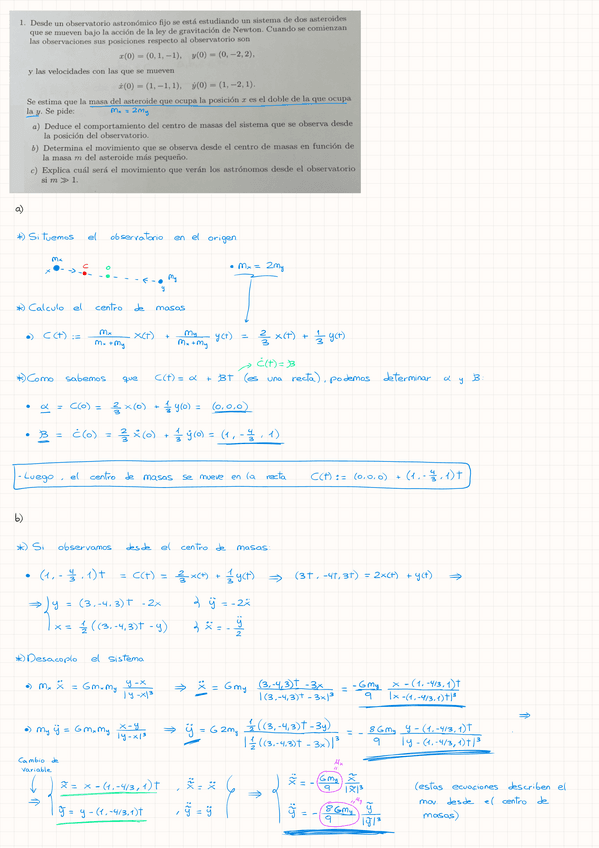 1. Desde un observatorio astronómico fijo se está estudiando un sistema de dos asteroides
que se mueven bajo la acción de la ley de gravitación de Newton. Cuando se comienzan
las observaciones sus posiciones respecto al observatorio son
x(0) = (0, 1, −1), y(0) = (0, −2, 2),
y las velocidades con las que se mueven
ẋ(0) = (1, −1, 1), ẏ(0) = (1, −2, 1).
Se estima que la masa del asteroide que ocupa la posición x es el doble de la que ocupa
la y. Se pide: mₓ = 2m_y
a) Deduce el comportamiento del centro de masas del sistema que se observa desde
la posición del observatorio.
b) Determina el movimiento que se observa desde el centro de masas en función de
la masa m del asteroide más pequeño.
c) Explica cuál será el movimiento que verán los astrónomos desde el observatorio
si m ≫ 1.
a)
*) Situemos el observatorio en el origen
mₓ
x c o m_y y
• mₓ = 2m_y
*) Calculo el centro de masas
•) C(t) := mₓ/(mₓ+m_y) x(t) + m_y/(mₓ+m_y) y(t) = 2/3 x(t) + 1/3 y(t)
→ Ċ(t) = B
*) Como sabemos que C(t) = α + Bt (es una recta), podemos determinar α y B
• α = C(0) = 2/3 x(0) + 1/3 y(0) = (0,0,0)
• B = Ċ(0) = 2/3 ẋ(0) + 1/3 ẏ(0) = (1, -4/3, 1)
- Luego, el centro de masas se mueve en la recta C(t) := (0,0,0) + (1, -4/3, 1)t
b)
*) Si observamos desde el centro de masas
• (1, -4/3, 1)t = C(t) = 2/3 x(t) + 1/3 y(t) ⇒ (3t, -4t, 3t) = 2x(t) + y(t) ⇒
⇒ { y = (3,-4,3)t - 2x } ÿ = -2ẍ
x = 1/2 ((3,-4,3)t - y) } ẍ = - ÿ/2
*) Desacoplo el sistema
•) mₓ ẍ = G mₓ m_y (y-x)/|y-x|³ ⇒ ẍ = G m_y ((3,-4,3)t - 3x)/|(3,-4,3)t - 3x|³ = -G m_y/9 (x - (1,-4/3,1)t)/|x - (1,-4/3,1)t|³
⇒
•) m_y ÿ = G mₓ m_y (x-y)/|y-x|³ ⇒ ÿ = G 2m_y (1/2((3,-4,3)t - 3y))/|1/2((3,-4,3)t - 3x)|³ = - 8Gm_y/9 (y - (1,-4/3,1)t)/|y - (1,-4/3,1)t|³
Cambio de
variable
⇒ { x̃ = x - (1,-4/3,1)t , ẍ̃ = ẍ ⇒ { ẍ̃ = - Gm_y/9 x̃/|x̃|³ (estas ecuaciones describen el
ỹ = y - (1,-4/3,1)t , ÿ̃ = ÿ ÿ̃ = - 8Gm_y/9 ỹ/|ỹ|³ mov. desde el centro de
masas)